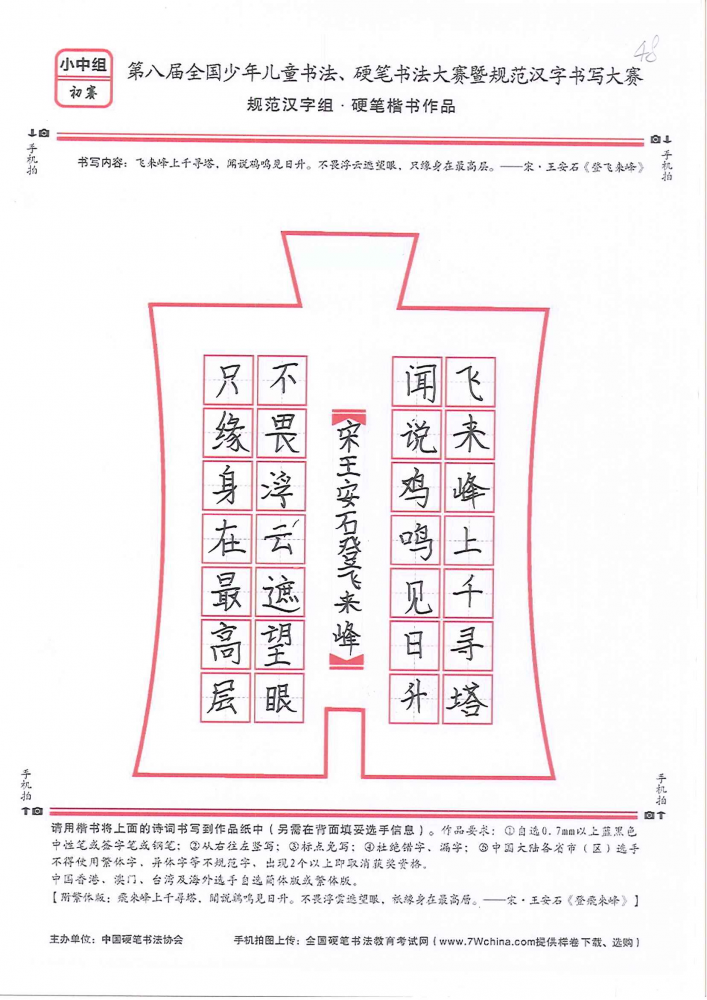 48
小中组
初赛
第八届全国少年儿童书法、硬笔书法大赛暨规范汉字书写大赛
规范汉字组·硬笔楷书作品
手机拍
手机拍
书写内容：飞来峰上千寻塔，闻说鸡鸣见日升。不畏浮云遮望眼，只缘身在最高层。——宋·王安石《登飞来峰》
飞来峰上千寻塔
闻说鸡鸣见日升
宋王安石登飞来峰
不畏浮云遮望眼
只缘身在最高层
手机拍
手机拍
请用楷书将上面的诗词书写到作品纸中（另需在背面填妥选手信息）。作品要求：①自选0.7mm以上蓝黑色
中性笔或签字笔或钢笔；②从右往左竖写；③标点免写；④杜绝错字、漏字；⑤中国大陆各省市（区）选手
不得使用繁体字、异体字等不规范字，出现2个以上即取消获奖资格。
中国香港、澳门、台湾及海外选手自选简体版或繁体版。
【附繁体版：飛來峰上千尋塔，聞說鷄鳴見日升。不畏浮雲遮望眼，祇緣身在最高層。——宋·王安石《登飛來峰》】
主办单位：中国硬笔书法协会
手机拍图上传：全国硬笔书法教育考试网（www.7Wchina.com提供样卷下载、选购）